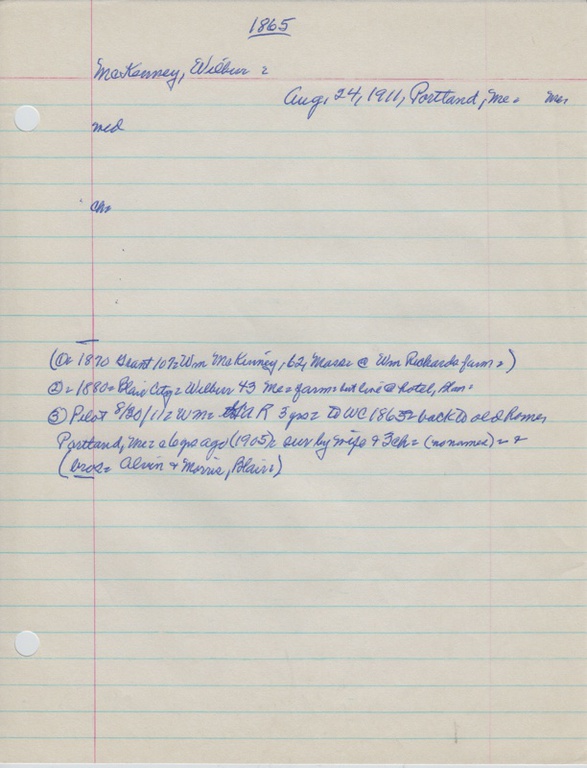 1865
McKenney, Wilbur =
Aug, 24, 1911, Portland, Me = Me,
md
ch=
(①= 1870 Grant 107= Wm McKinney, 62, Mass= @ Wm Richards farm=)
②= 1880= Blair City= Wilbur 43 Me= farm= but live @ hotel, Blair=
③ Pilot 8/30/11= Wm= R 3 yrs= to WC 1865= back to old home,
Portland, Me= 6 yrs ago (1905)= sur by wife & 3 ch= (no names)= &
(bros= Alvin & Morris, Blair=)